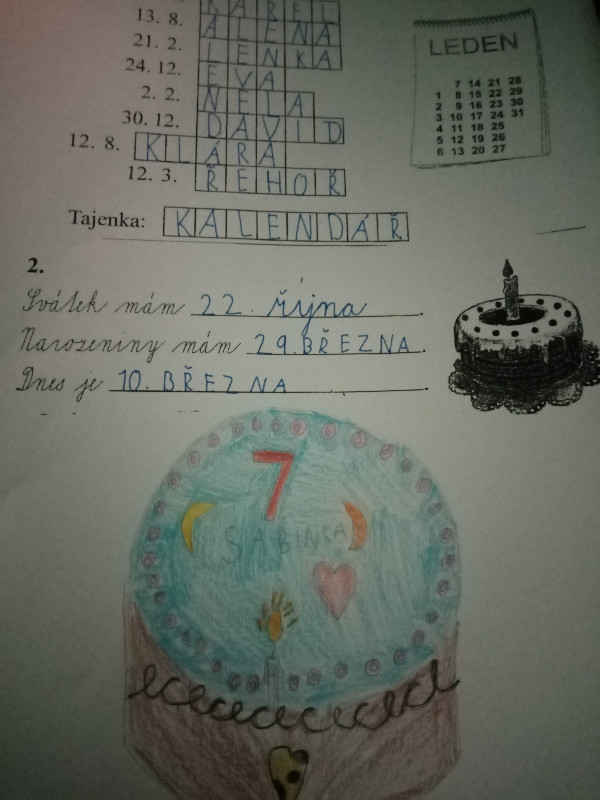 KAREL
13. 8. ALENA
21. 2. LENKA
24. 12. EVA
2. 2. NELA
30. 12. DAVID
12. 8. KLÁRA
12. 3. ŘEHOŘ
Tajenka: KALENDÁŘ
LEDEN
7 14 21 28
1 8 15 22 29
2 9 16 23 30
3 10 17 24 31
4 11 18 25
5 12 19 26
6 13 20 27
2.
Svátek mám 22. října.
Narozeniny mám 29. BŘEZNA.
Dnes je 10. BŘEZNA.
7
SABINKA